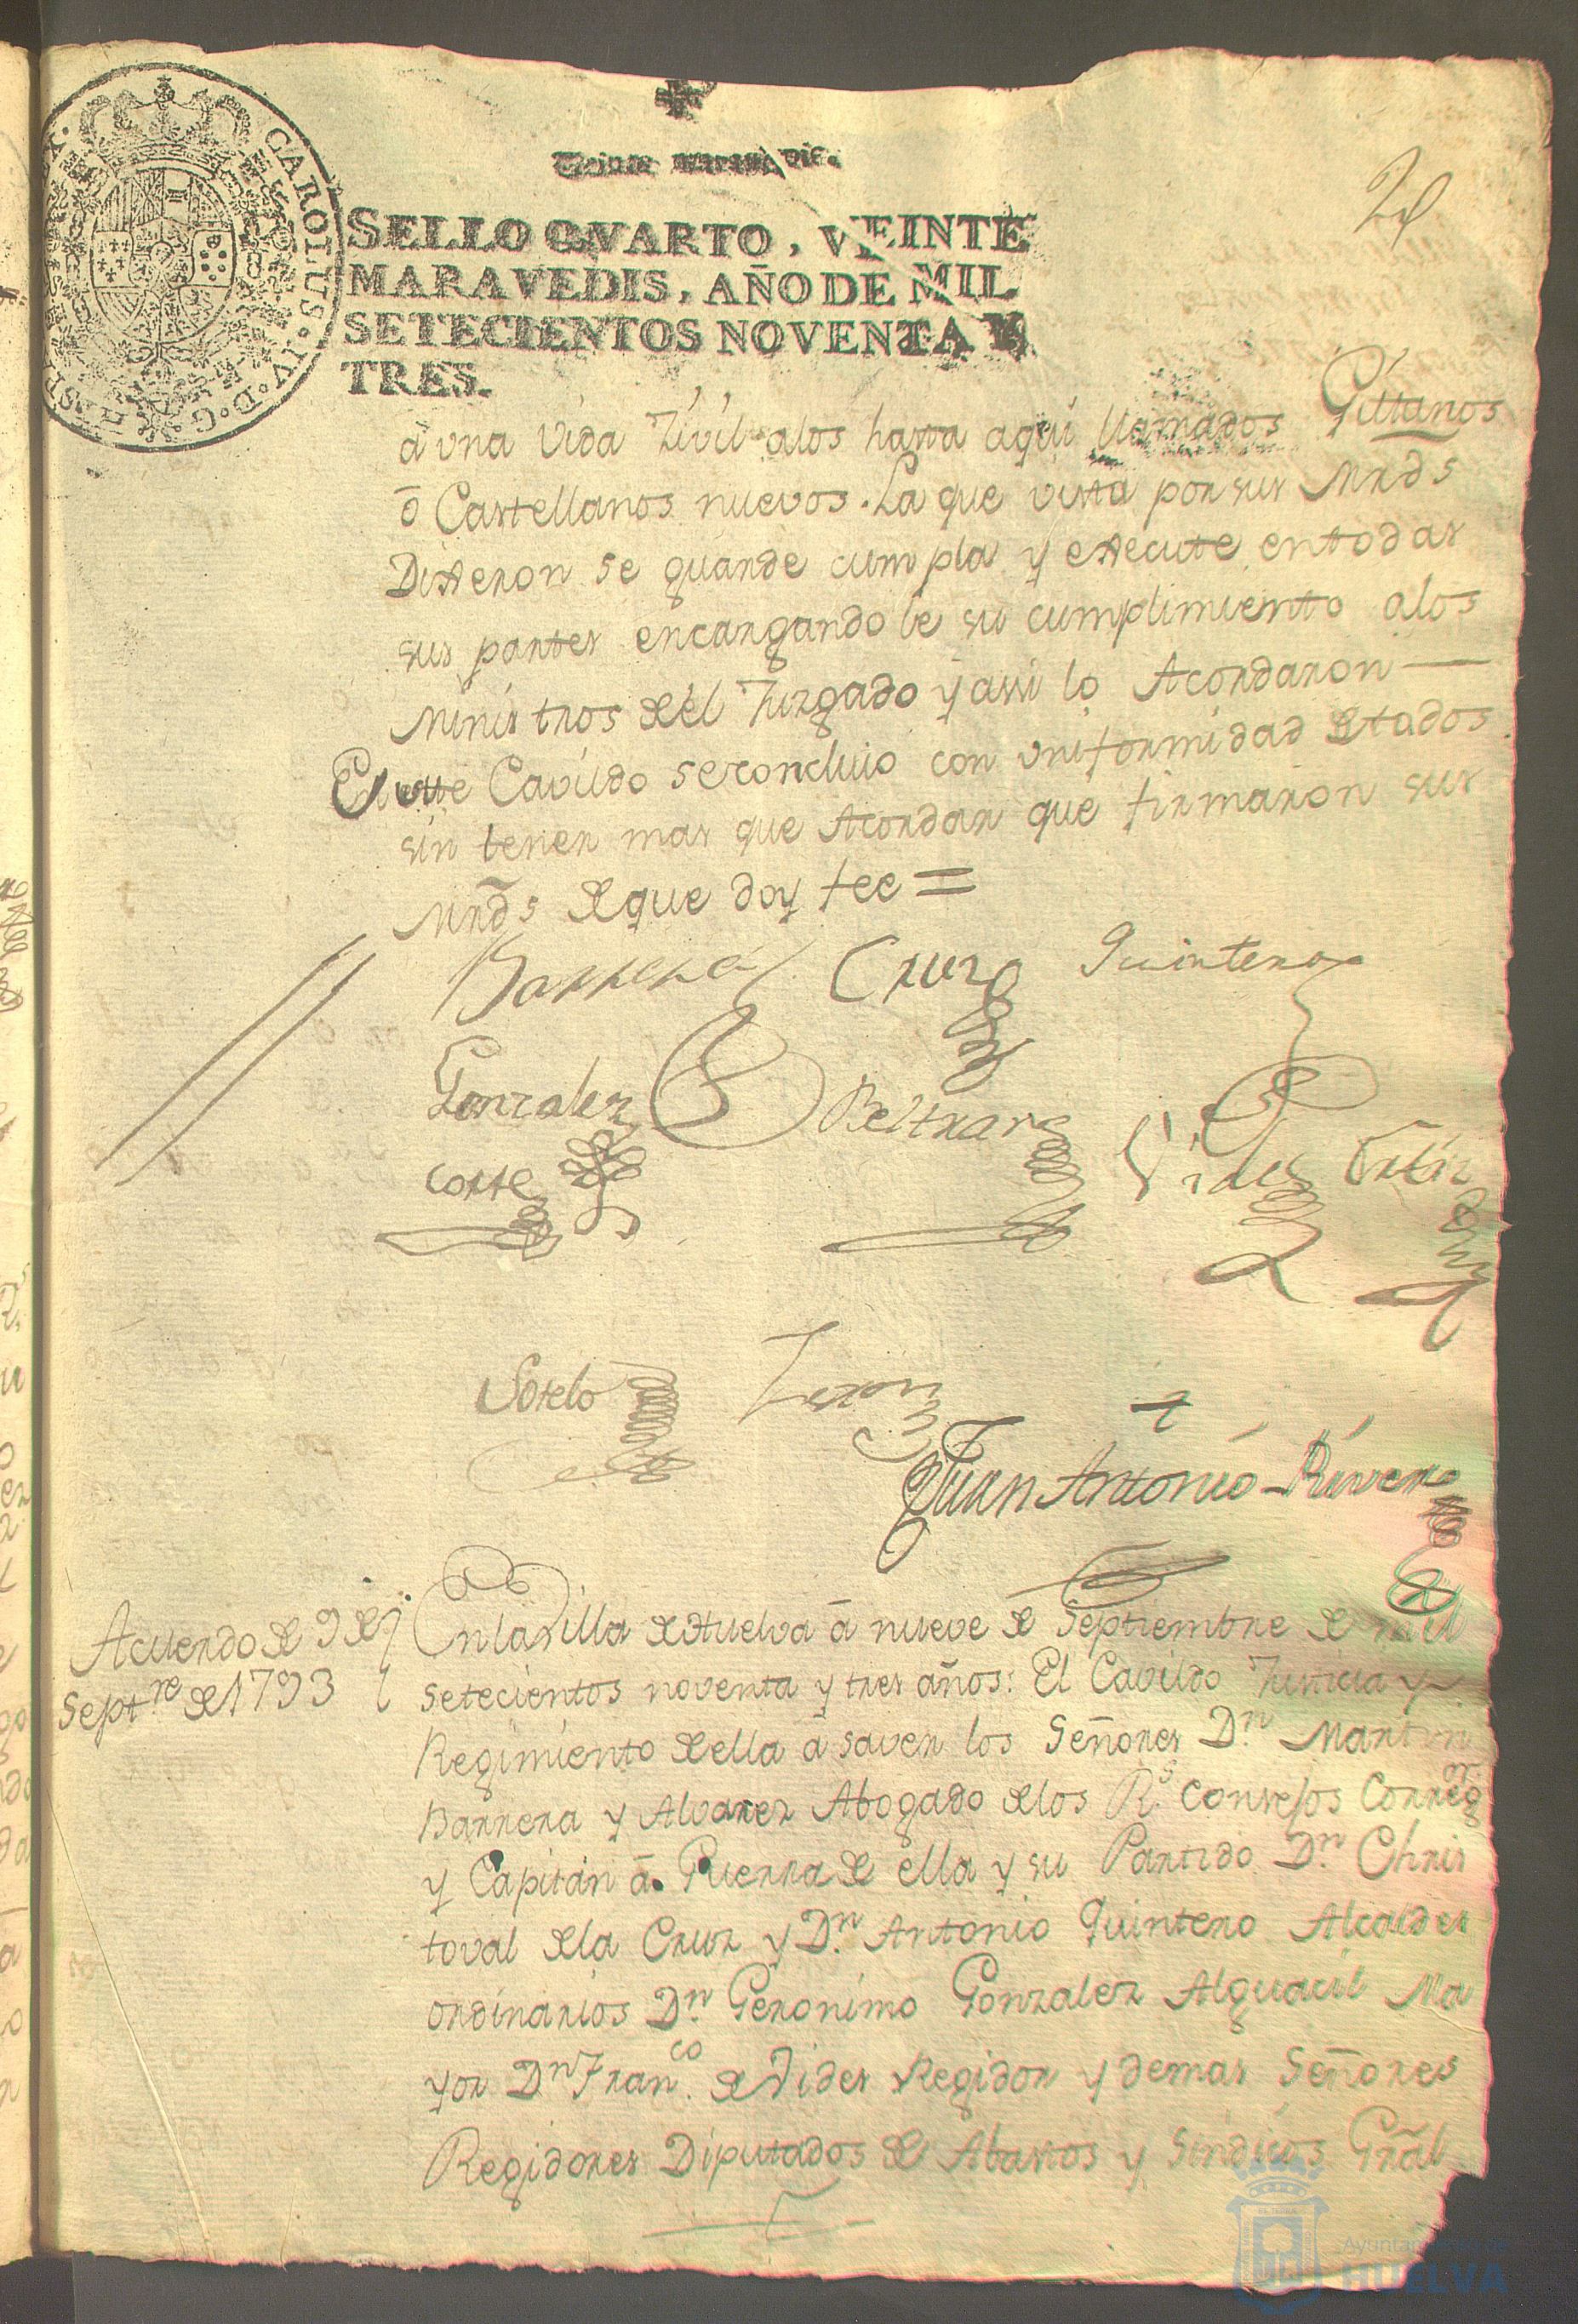 CAROLUS · IV · D · G ·
Veinte maravedis.
SELLO QVARTO, VEINTE
MARAVEDIS, AÑO DE MIL
SETECIENTOS NOVENTA Y
TRES.
â vna vida Zivil alos hasta aqui llamados Gittanos
ô Castellanos nuevos. La que vista por sus Mrds
Dixeron se guarde cumpla y execute entodas
sus partes encargandole su cumplimiento alos
Ministros del Juzgado y assi lo Acordaron —
En este Cavildo se concluio con vniformidad de tados
sin tener mas que Acordar que firmaron sus
Mrds de que doy fee =
Barrera Cruz Quintero
Gonzalez Beltran Vides Ortiz
Corte
Sotelo
Juan Antonio Rivera
Acuerdo de 9 de
Septre de 1793
En la Villa de Huelva â nueve de Septiembre de mil
setecientos noventa y tres años: El Cavildo Justicia y
Regimiento de ella â saver los Señores Dn. Martin
Barrera y Alvarez Abogado de los Rs. Consejos Corregor.
y Capitan â Guerra de ella y su Partido Dn. Chris
toval de la Cruz y Dn. Antonio Quintero Alcaldes
ordinarios Dn. Geronimo Gonzalez Alguacil Ma
yor Dn Franco. de Vides Regidor y demas Señores
Regidores Diputados de Abastos y Sindicos Gral
Ayuntamiento de
HUELVA